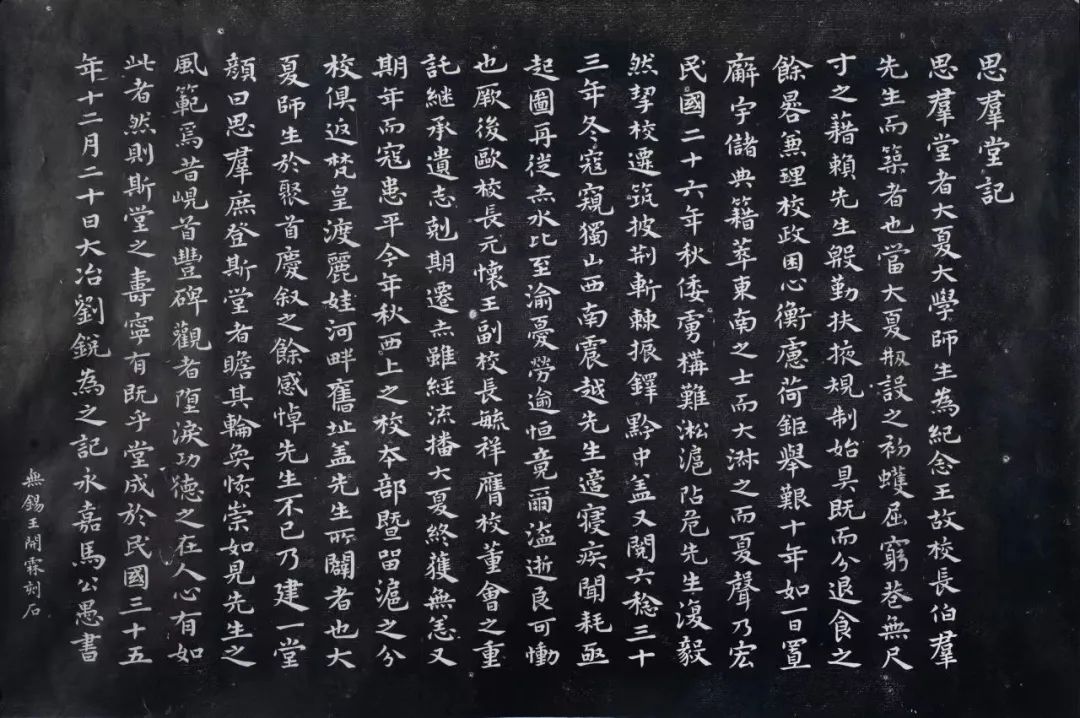 思羣堂記
思羣堂者大夏大學師生為紀念王故校長伯羣
先生而築者也當大夏剏設之初蠖屈窮巷無尺
寸之藉賴先生殷勤扶掖規制始具既而分退食之
餘晷兼理校政困心衡慮荷鉅舉艱十年如一日置
廨宇儲典籍萃東南之士而大淋之而夏聲乃宏
民國二十六年秋倭虜構難淞滬阽危先生復毅
然挈校遷筑披荆斬棘振鐸黔中盖又閱六稔三十
三年冬寇窺獨山西南震越先生適寢疾聞耗亟
起圖再徙赤水比至渝憂勞逾恒竟爾溘逝良可慟
也厥後歐校長元懷王副校長毓祥膺校董會之重
託継承遺志剋期遷赤雖經流播大夏終獲無恙又
期年而寇患平今年秋西上之校本部暨留滬之分
校俱返梵皇渡麗娃河畔舊址盖先生所闢者也大
夏師生於聚首慶叙之餘感悼先生不已乃建一堂
顏曰思羣庶登斯堂者瞻其輪奐怳崇如見先生之
風範焉昔峴首豐碑觀者墮淚功德之在人心有如
此者然則斯堂之壽寧有既乎堂成於民國三十五
年十二月二十日大冶劉銳為之記永嘉馬公愚書
無錫王開霖刻石